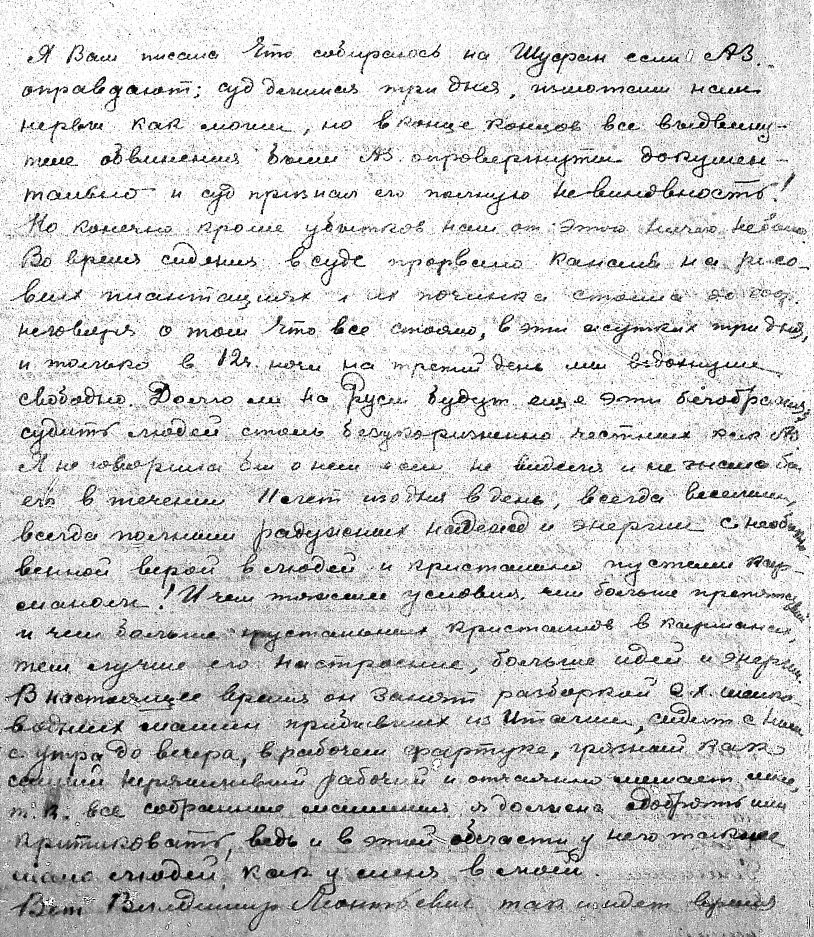 Я Вам писала что собиралась на Шуфан если АВ.
оправдают; суд длился три дня, измотали нам
нервы как могли, но в конце концов все выдвину-
тые обвинения были АВ. опровергнуты докумен-
тально и суд признал его полную невиновность!
Но конечно кроме убытков нам от этого ничего не было.
Во время сидения в суде прорвало каналы на рисо-
вых плантациях и их починка стоила
не говоря о том что все стояло, в эти жуткие три дня,
и только в 12ч. ночи на третий день мы вздохнули
свободно. Долго ли на Руси будут еще эти безобразия,
судить людей столь безукоризненно честных как АВ
Я не говорила бы о нем если не видела и не знала бы
его в течении 11 лет изо дня в день, всегда веселым,
всегда полным радужных надежд и энергии с необыкно
венной верой в людей и кристально пустыми кар-
манами! И чем тяжелее условия, чем больше препятствий
и чем больше хрустальных кристаллов в карманах,
тем лучше его настроение, больше идей и энергии.
В настоящее время он занят разборкой 2х. шелко-
водных машин прибывших из Италии, сидит с ними
с утра до вечера, в рабочем фартуке, грязный как
самый неряшливый рабочий и отчаянно мешает мне,
т.к. все собранные машины я должна одобрять или
критиковать, ведь и в этой области у него также
мало людей как у меня в моей.
Вот Владимир Леонтьевич так и идет время